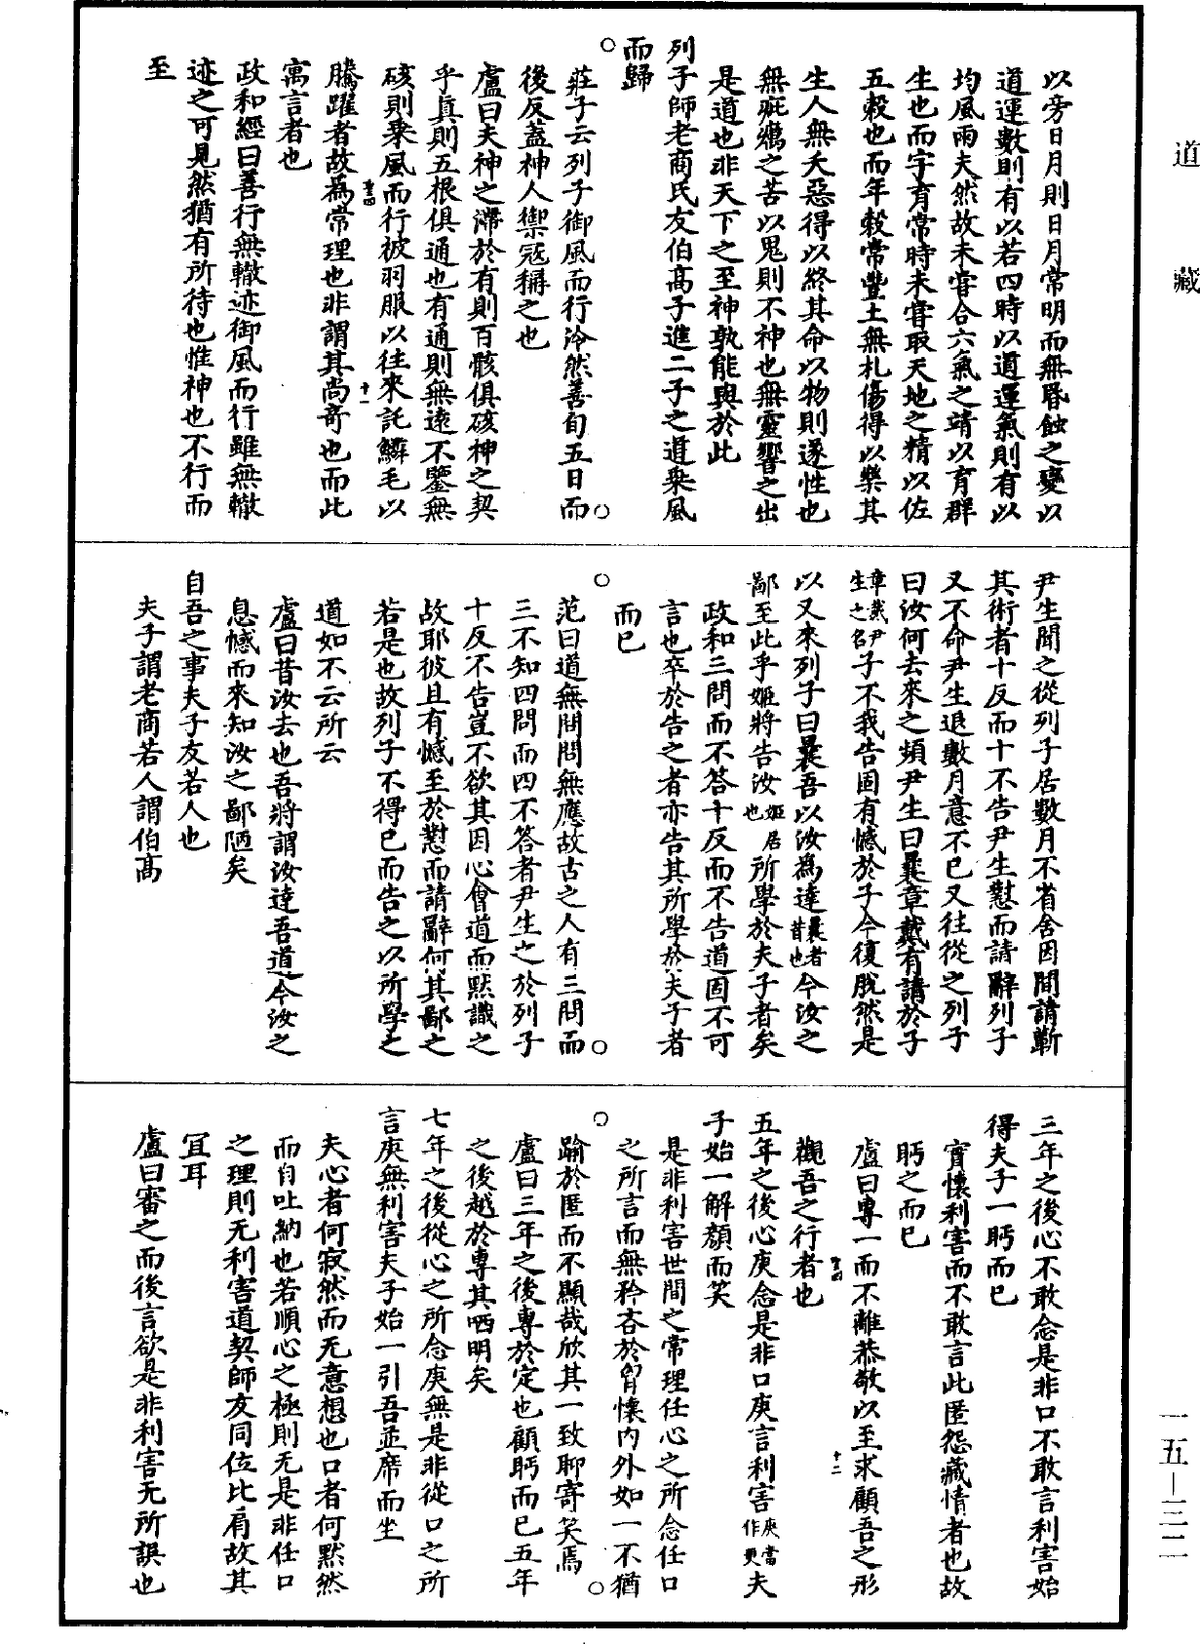 道藏
以旁日月則日月常明而無昬蝕之變以
道運數則有以若四時以道運氣則有以
均風雨夫然故未嘗合六氣之靖以育群
生也而字育常時未嘗取天地之精以佐
五穀也而年穀常豐土無札傷得以樂其
生人無夭惡得以終其命以物則遂性也
無疵癘之苦以鬼則不神也無靈響之出
是道也非天下之至神孰能與於此
列子師老商氏友伯高子進二子之道乘風
而歸
莊子云列子御風而行泠然善旬五日而
後反蓋神人禦冦稱之也
盧曰夫神之滯於有則百骸俱硋神之契
乎真則五根俱通也有通則無遠不鑒無
硋則乘風而行被羽服以往來託鱗毛以
騰躍者故為常理也非謂其尚奇也而此
寓言者也
政和經曰善行無轍迹御風而行雖無轍
迹之可見然猶有所待也惟神也不行而
至
尹生聞之從列子居數月不省舍因間請蘄
其術者十反而十不告尹生懟而請辭列子
又不命尹生退數月意不已又往從之列子
曰汝何去來之頻尹生曰曩章戴有請於子
章戴尹生之名子不我告固有憾於子今復脫然是
以又來列子曰曩吾以汝為達曩者昔也今汝之
鄙至此乎姬將告汝姬居也所學於夫子者矣
政和三問而不答十反而不告道固不可
言也卒於告之者亦告其所學於夫子者
而已
范曰道無問問無應故古之人有三問而
三不知四問而四不答者尹生之於列子
十反不告豈不欲其因心會道而默識之
故耶彼且有憾至於懟而請辭何其鄙之
若是也故列子不得已而告之以所學之
道如不云所云
盧曰昔汝去也吾將謂汝達吾道今汝之
息憾而來知汝之鄙陋矣
自吾之事夫子友若人也
夫子謂老商若人謂伯高
三年之後心不敢念是非口不敢言利害始
得夫子一眄而已
實懷利害而不敢言此匿怨藏情者也故
眄之而已
盧曰專一而不離恭敬以至求顧吾之形
觀吾之行者也
五年之後心庚念是非口庚言利害庚當作更夫
子始一解顏而笑
是非利害世間之常理任心之所念任口
之所言而無矜吝於胷懷內外如一不猶
踰於匿而不顯哉欣其一致聊寄笑焉
盧曰三年之後專於定也顧眄而已五年
之後越於專其哂明矣
七年之後從心之所念庚無是非從口之所
言庚無利害夫子始一引吾並席而坐
夫心者何寂然而无意想也口者何默然
而自吐納也若順心之極則无是非任口
之理則无利害道契師友同位比肩故其
冝耳
盧曰審之而後言欲是非利害无所誤也
十一
十二
一五—三二